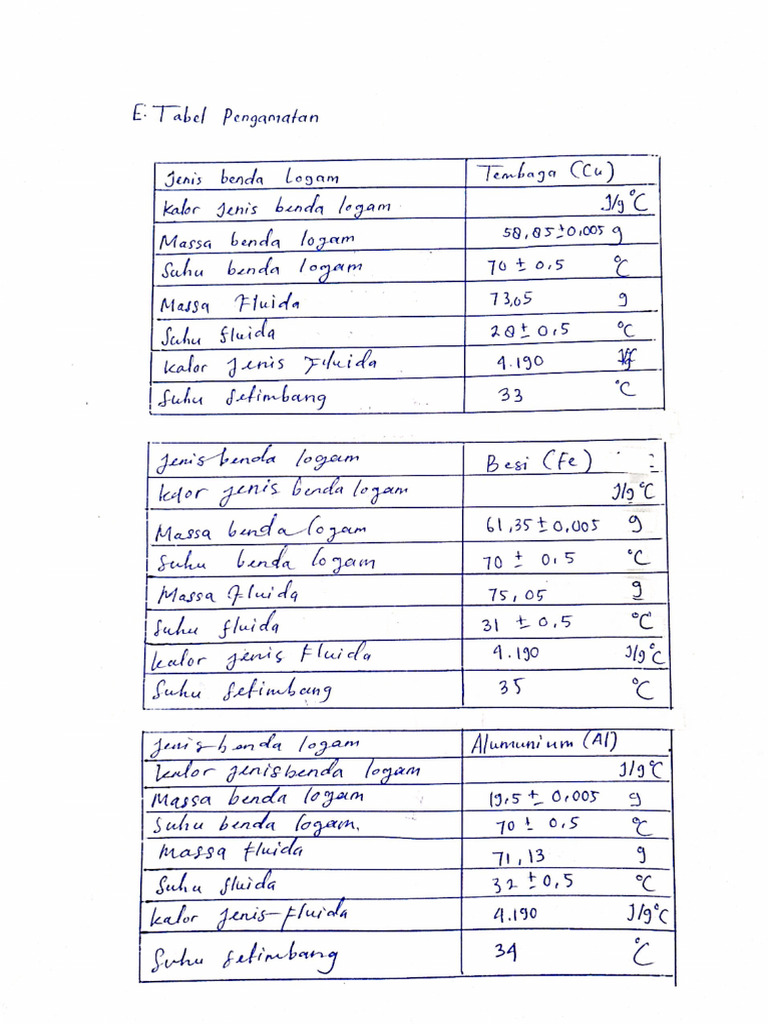 E. Tabel Pengamatan
Jenis benda Logam Tembaga (Cu)
Kalor Jenis benda logam J/g°C
Massa benda logam 58,85±0,005 g
Suhu benda logam 70 ± 0,5 °C
Massa Fluida 73,05 g
Suhu fluida 28 ± 0,5 °C
Kalor Jenis Fluida 4.190
Suhu Setimbang 33 °C
Jenis benda logam Besi (Fe)
Kalor jenis benda logam J/g°C
Massa benda logam 61,35 ± 0,005 g
Suhu benda logam 70 ± 0,5 °C
Massa Fluida 75,05 g
Suhu fluida 31 ± 0,5 °C
Kalor jenis Fluida 4.190 J/g°C
Suhu Setimbang 35 °C
Jenis benda logam Alumunium (Al)
Kalor jenis benda logam J/g°C
Massa benda logam 19,5 ± 0,005 g
Suhu benda logam. 70 ± 0,5 °C
Massa fluida 71,13 g
Suhu fluida 32 ± 0,5 °C
Kalor Jenis-fluida 4.190 J/g°C
Suhu Setimbang 34 °C